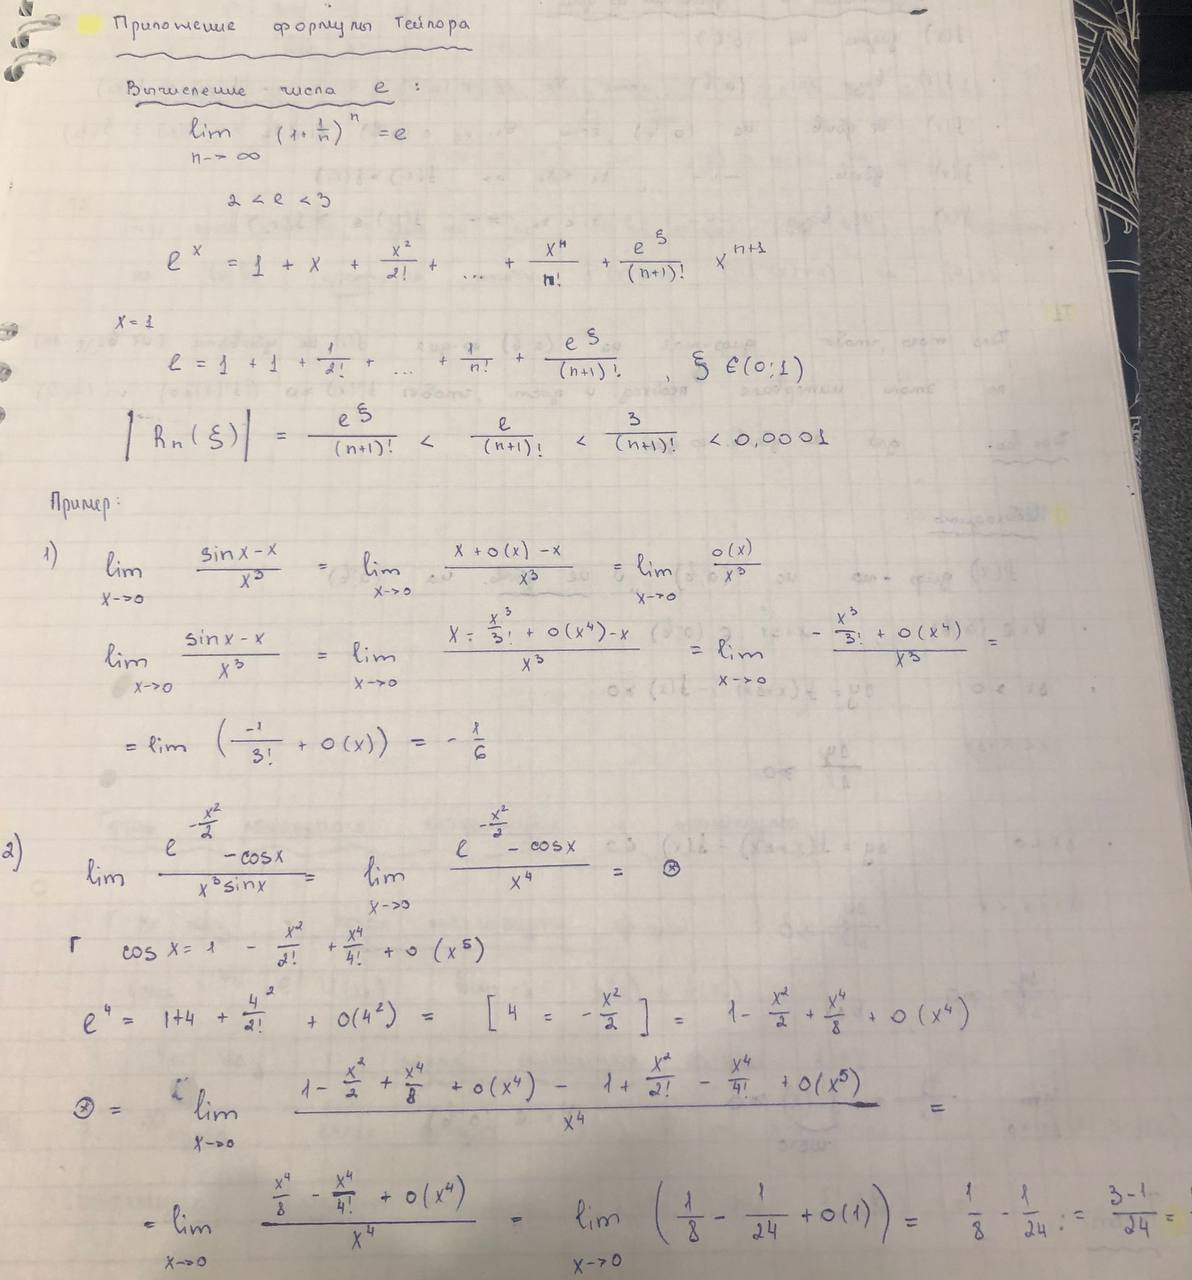 Приложение формулы Тейлора
Вычисление числа e :
lim (1+ 1/n)^n = e
n->∞
2 < e < 3
e^x = 1 + x + x²/2! + ... + x^n/n! + e^ξ/(n+1)! x^(n+1)
x = 1
e = 1 + 1 + 1/2! + ... + 1/n! + e^ξ/(n+1)! , ξ ∈ (0;1)
|Rn(ξ)| = e^ξ/(n+1)! < e/(n+1)! < 3/(n+1)! < 0,0001
Пример:
1) lim x->0 (sinx-x)/x³ = lim x->0 (x+o(x)-x)/x³ = lim x->0 o(x)/x³
lim x->0 (sinx-x)/x³ = lim x->0 (x - x³/3! + o(x⁴)-x)/x³ = lim x->0 (- x³/3! + o(x⁴))/x³ =
= lim (-1/3! + o(x)) = - 1/6
2) lim (e^(-x²/2) - cosx)/(x³sinx) = lim x->0 (e^(-x²/2) - cosx)/x⁴ = ⊛
Г cos x = 1 - x²/2! + x⁴/4! + o(x⁵)
e^4 = 1+4 + 4²/2! + o(4²) = [4 = -x²/2] = 1- x²/2 + x⁴/8 + o(x⁴)
⊛ = lim x->0 (1- x²/2 + x⁴/8 + o(x⁴) - 1 + x²/2! - x⁴/4! + o(x⁵))/x⁴ =
= lim x->0 (x⁴/8 - x⁴/4! + o(x⁴))/x⁴ = lim x->0 (1/8 - 1/24 + o(1)) = 1/8 - 1/24 = (3-1)/24 =